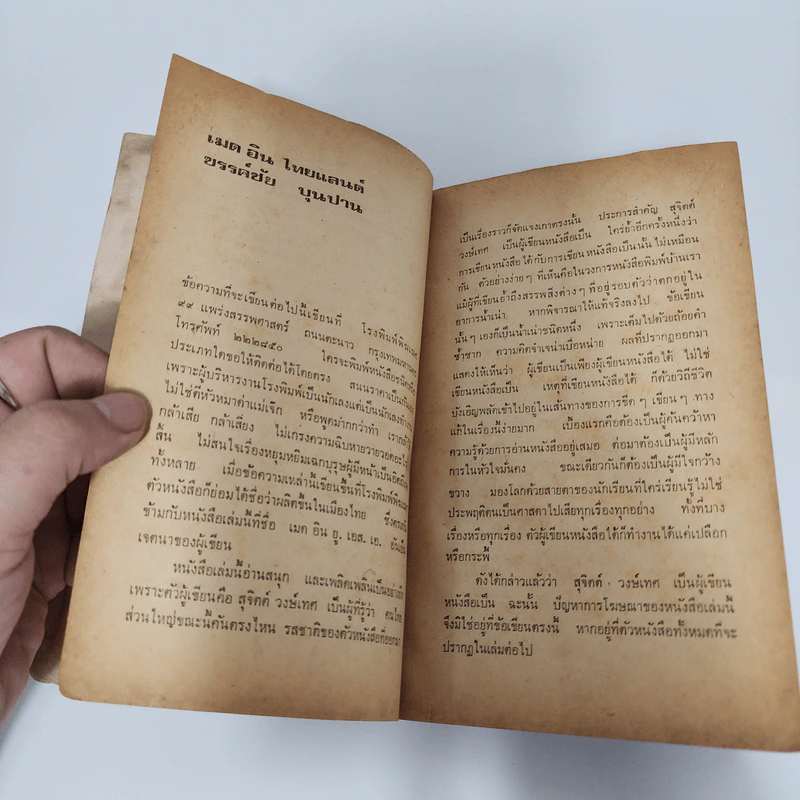 เมด อิน ไทยแลนด์
ขรรค์ชัย บุนปาน
ข้อความที่จะเขียนต่อไปนี้เขียนที่ โรงพิมพ์พิฆเณศ
๙๙ แพร่งสรรพศาสตร์ ถนนตะนาว กรุงเทพมหานคร
โทรศัพท์ ๒๒๒๘๕๐ ใครจะพิมพ์หนังสือชนิดหนึ่ง
ประเภทใดขอให้ติดต่อได้โดยตรง สนนราคาเป็นกันเอง
เพราะผู้บริหารงานโรงพิมพ์เป็นนักเลงแต่เป็นนักเลง
ไม่ใช่ตีหัวหมาด่าแม่เจ๊ก หรือพูดมากกว่าทำ เรา
กล้าเสีย กล้าเสี่ยง ไม่เกรงความฉิบหายวายวอด
สิ้น ไม่สนใจเรื่องหยุมหยิมเฉกบุรุษผู้มีหน้าเป็น
ทั้งหลาย เมื่อข้อความเหล่านี้เขียนขึ้นที่โรงพิมพ์พิฆเณศ
ตัวหนังสือก็ย่อมได้ชื่อว่าผลิตขึ้นในเมืองไทย ซึ่งตรงกัน
ข้ามกับหนังสือเล่มนี้ที่ชื่อ เมด อิน ยู. เอส. เอ. อันเป็น
เจตนาของผู้เขียน
หนังสือเล่มนี้อ่านสนุก และเพลิดเพลินเป็นอย่างยิ่ง
เพราะตัวผู้เขียนคือ สุจิตต์ วงษ์เทศ เป็นผู้ที่รู้ว่า คนไทย
ส่วนใหญ่ขณะนี้คันตรงไหน รสชาติของตัวหนังสือที่ออกมา
เป็นเรื่องราวก็จัดแจงเกาตรงนั้น ประการสำคัญ สุจิตต์
วงษ์เทศ เป็นผู้เขียนหนังสือเป็น ใคร่ย้ำอีกครั้งหนึ่งว่า
การเขียนหนังสือได้กับการเขียนหนังสือเป็นนั้น ไม่เหมือน
กัน ตัวอย่างง่าย ๆ ที่เห็นคือในวงการหนังสือพิมพ์บ้านเรา
แม้ผู้ที่เขียนย้ำถึงสรรพสิ่งต่าง ๆ ที่อยู่รอบตัวว่าตกอยู่ใน
อาการน้ำเน่า หากพิจารณาให้แท้จริงลงไป ข้อเขียน
นั้น ๆ เองก็เป็นน้ำเน่าชนิดหนึ่ง เพราะเต็มไปด้วยถ้อยคำ
ซ้ำซาก ความคิดจำเจน่าเบื่อหน่าย ผลที่ปรากฏออกมา
แสดงให้เห็นว่า ผู้เขียนเป็นเพียงผู้เขียนหนังสือได้ ไม่ใช่
เขียนหนังสือเป็น เหตุที่เขียนหนังสือได้ ก็ด้วยวิถีชีวิต
บังเอิญพลัดเข้าไปอยู่ในเส้นทางของการขีด ๆ เขียน ๆ ทาง
แก้ในเรื่องนี้ง่ายมาก เบื้องแรกคือต้องเป็นผู้ค้นคว้าหา
ความรู้ด้วยการอ่านหนังสืออยู่เสมอ ต่อมาต้องเป็นผู้มีหลัก
การในหัวใจมั่นคง ขณะเดียวกันก็ต้องเป็นผู้มีใจกว้าง
ขวาง มองโลกด้วยสายตาของนักเรียนที่ใคร่เรียนรู้ ไม่ใช่
ประพฤติตนเป็นศาสดาไปเสียทุกเรื่องทุกอย่าง ทั้งที่บาง
เรื่องหรือทุกเรื่อง ตัวผู้เขียนหนังสือได้ก็ทำงานได้แค่เปลือก
หรือกระพี้
ดังได้กล่าวแล้วว่า สุจิตต์ วงษ์เทศ เป็นผู้เขียน
หนังสือเป็น ฉะนั้น ปัญหาการโฆษณาของหนังสือเล่มนี้
จึงมิใช่อยู่ที่ข้อเขียนตรงนี้ หากอยู่ที่ตัวหนังสือทั้งหมดที่จะ
ปรากฏในเล่มต่อไป